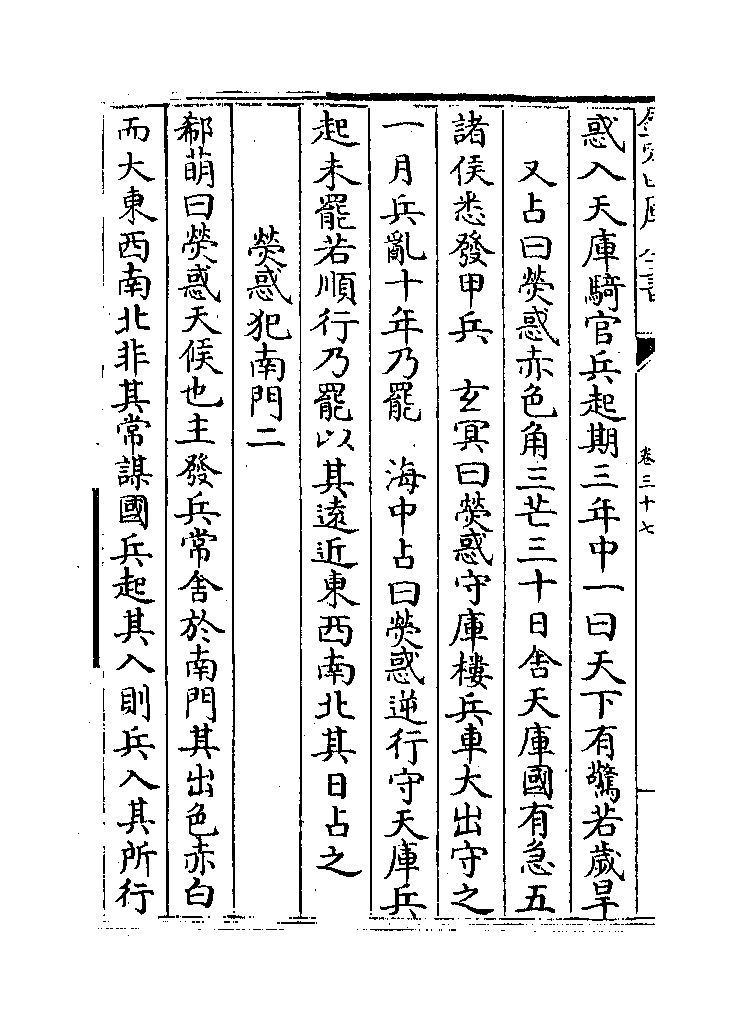 惑入天庫騎官兵起期三年中一曰天下有驚若歲旱
又占曰熒惑赤色角三芒三十日舍天庫國有急五
諸侯悉發甲兵　玄冥曰熒惑守庫樓兵車大出守之
一月兵亂十年乃罷　海中占曰熒惑逆行守天庫兵
起未罷若順行乃罷以其遠近東西南北其日占之
熒惑犯南門二
郗萌曰熒惑天候也主發兵常舍於南門其出色赤白
而大東西南北非其常謀國兵起其入則兵入其所行
卷三十七